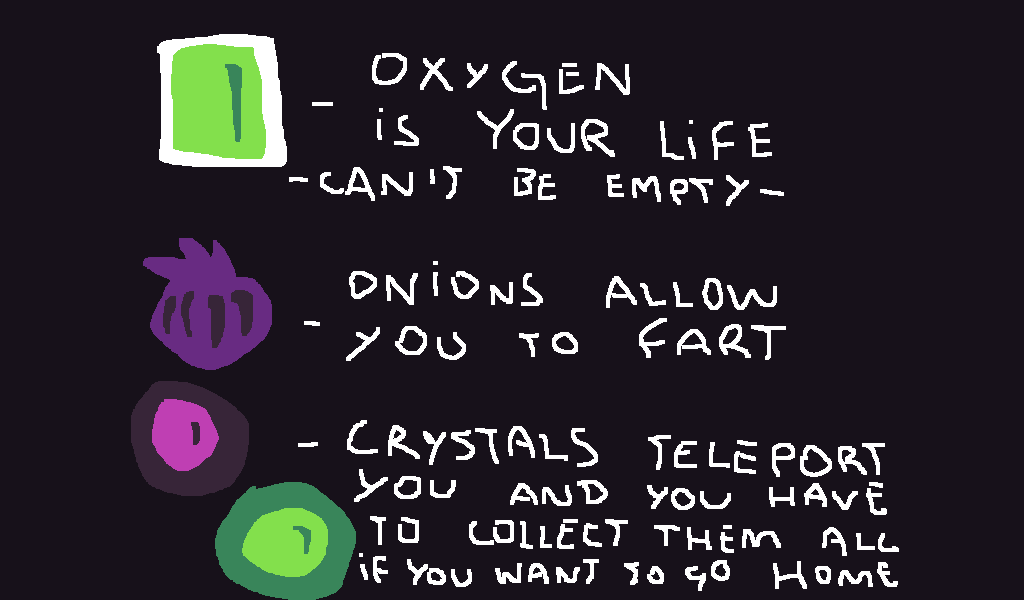 - OXYGEN
iS YOUR LiFE
-CAN'T BE EMPTY-
- ONiONS ALLOW
YOU TO FART
- CRYSTALS TELEPORT
YOU AND YOU HAVE
TO COLLECT THEM ALL
iF YOU WANT TO GO HOME